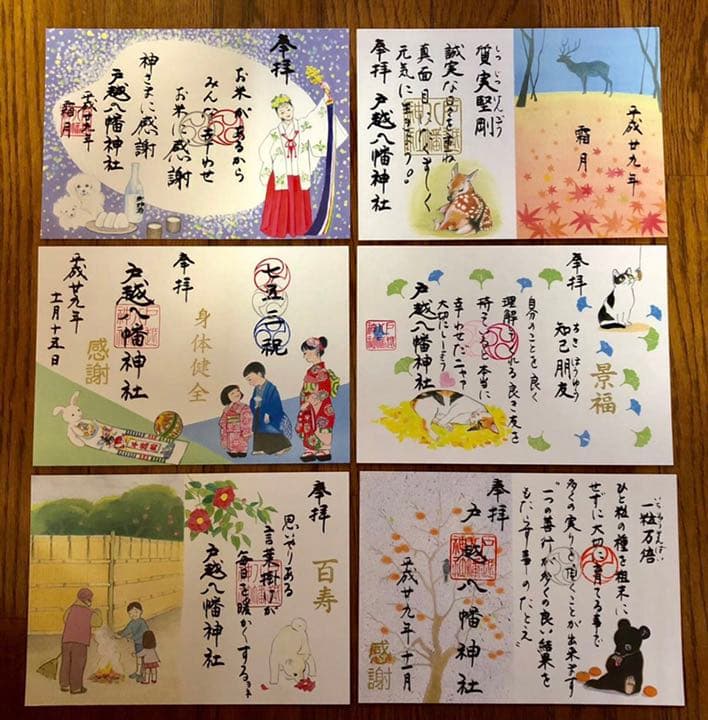 奉拝
お米があるから
みんな幸わせ
お米に感謝
神さまに感謝
戸越八幡神社
平成廿九年
霜月
平成廿九年
霜月
質実堅剛
誠実な
真面目に
元気に
奉拝 戸越八幡神社
七五三祝
奉拝
身体健全
戸越八幡神社
感謝
平成廿九年
十一月十五日
奉拝
景福
ちきほうゆう
知己朋友
自分のことを良く
理解してくれる良き友を
持てると本当に
幸わせだニャー
大切にしましょう
戸越八幡神社
奉拝
百寿
思いやりある
言葉掛けが
毎日を暖かくするョ
戸越八幡神社
いちりゅうまんばい
一粒万倍
ひと粒の種を粗末に
せずに大切に育てる事で
多くの実りを頂くことが出来ます
"一つの善行が多くの良い結果を
もたらす事"のたとえ
奉拝
戸越八幡神社
平成廿九年十一月
感謝